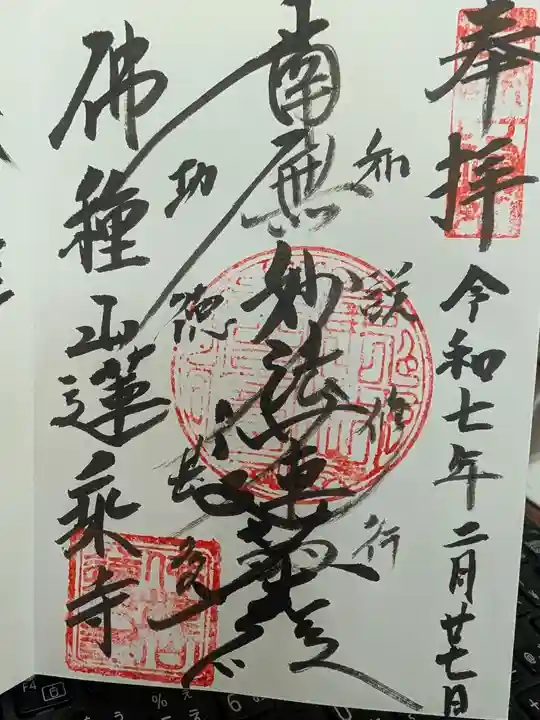 奉拝
令和七年二月廿七日
如説修行
南無妙法蓮華経
功徳甚多
佛種山蓮乗寺
F4